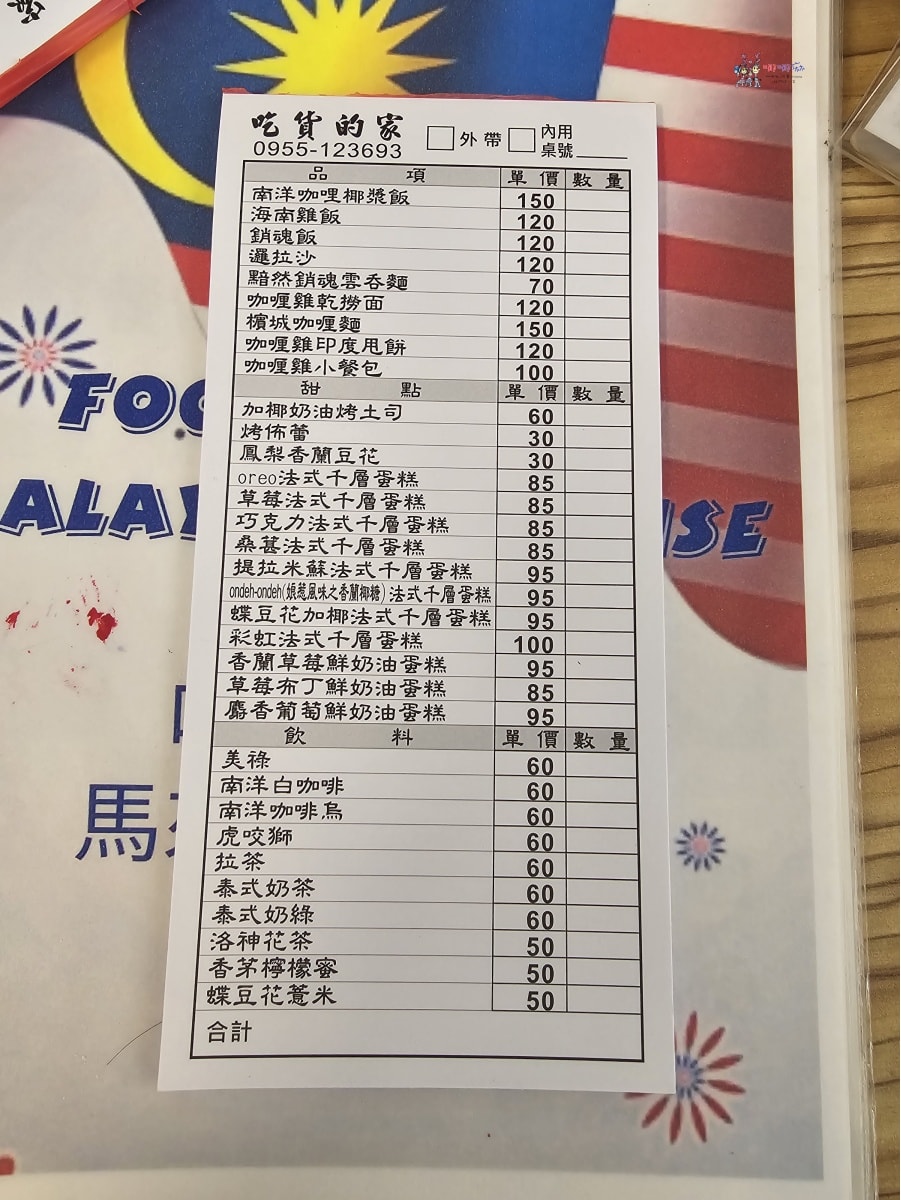 吃貨的家
0955-123693
外帶
內用
桌號
品項 單價 數量
南洋咖哩椰漿飯 150
海南雞飯 120
銷魂飯 120
邏拉沙 120
黯然銷魂雲吞麵 70
咖喱雞乾撈面 120
檳城咖喱麵 150
咖喱雞印度甩餅 120
咖喱雞小餐包 100
甜點 單價 數量
加椰奶油烤土司 60
烤佈蕾 30
鳳梨香蘭豆花 30
oreo法式千層蛋糕 85
草莓法式千層蛋糕 85
巧克力法式千層蛋糕 85
桑葚法式千層蛋糕 85
提拉米蘇法式千層蛋糕 95
ondeh-ondeh(娘惹風味之香蘭椰糖)法式千層蛋糕 95
蝶豆花加椰法式千層蛋糕 95
彩虹法式千層蛋糕 100
香蘭草莓鮮奶油蛋糕 95
草莓布丁鮮奶油蛋糕 85
麝香葡萄鮮奶油蛋糕 95
飲料 單價 數量
美祿 60
南洋白咖啡 60
南洋咖啡烏 60
虎咬獅 60
拉茶 60
泰式奶茶 60
泰式奶綠 60
洛神花茶 50
香茅檸檬蜜 50
蝶豆花薏米 50
合計
FOO
ALAY
ISE
馬